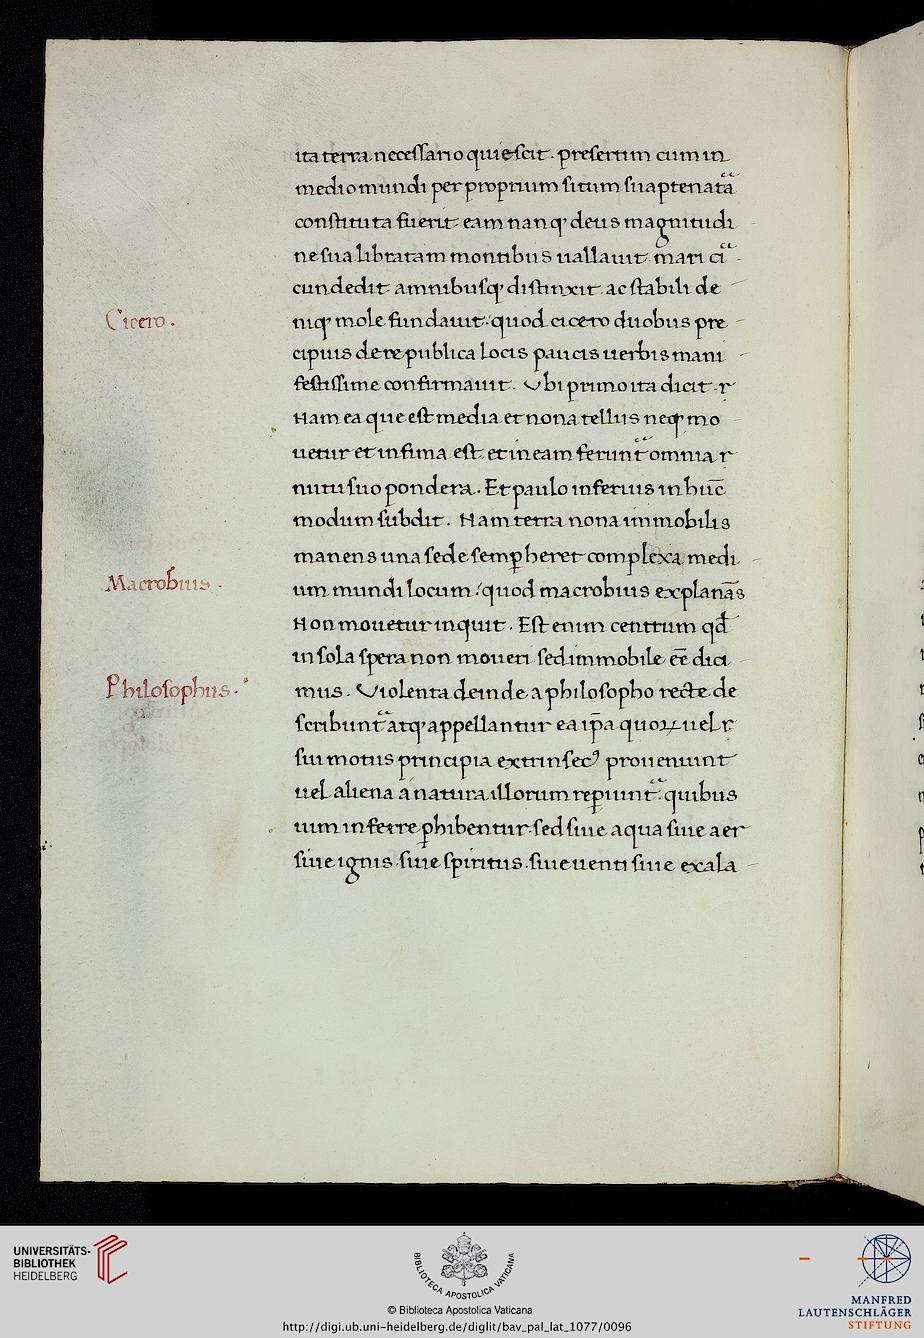 ita terra necessario quiescit. presertim cum in
medio mundi per proprium situm suaptenatã
constituta fuerit. eam nanqꝫ deus magnitudi
ne sua libratam montibus uallauit. mari cĩ
cundedit. amnibusqꝫ distinxit. ac stabili de
Cicero.
niqꝫ mole fundauit. quod cicero duobus pre
cipuis de re publica locis paucis uerbis mani
festissime confirmauit. Vbi primo ita dicit. r
Nam ea que est media et nona tellus neqꝫ mo
uetur et infima est. et in eam feruntᷓ omnia r
nutu suo pondera. Et paulo inferius in hūc
modum subdit. Nam terra nona immobilis
manens una sede semꝑ heret complexa medi
Macrobius.
um mundi locum. quod macrobius explanãs
Non mouetur inquit. Est enim centrum qđ
in sola spera non moueri sed immobile eē dici
Philosophus.
mus. Violenta deinde a philosopho recte de
scribuntᷓ atqꝫ appellantur ea ip̄a quoꝝ uel r
sui motus principia extrinsecꝰ proueniunt
uel aliena a natura illorum reꝑiuntᷓ. quibus
uim inferre ꝑhibentur. sed siue aqua siue aer
siue ignis. siue spiritus. siue uenti siue exala
UNIVERSITÄTS-
BIBLIOTHEK
HEIDELBERG
BIBLIOTECA APOSTOLICA VATICANA
© Biblioteca Apostolica Vaticana
http://digi.ub.uni-heidelberg.de/diglit/bav_pal_lat_1077/0096
MANFRED
LAUTENSCHLÄGER
STIFTUNG